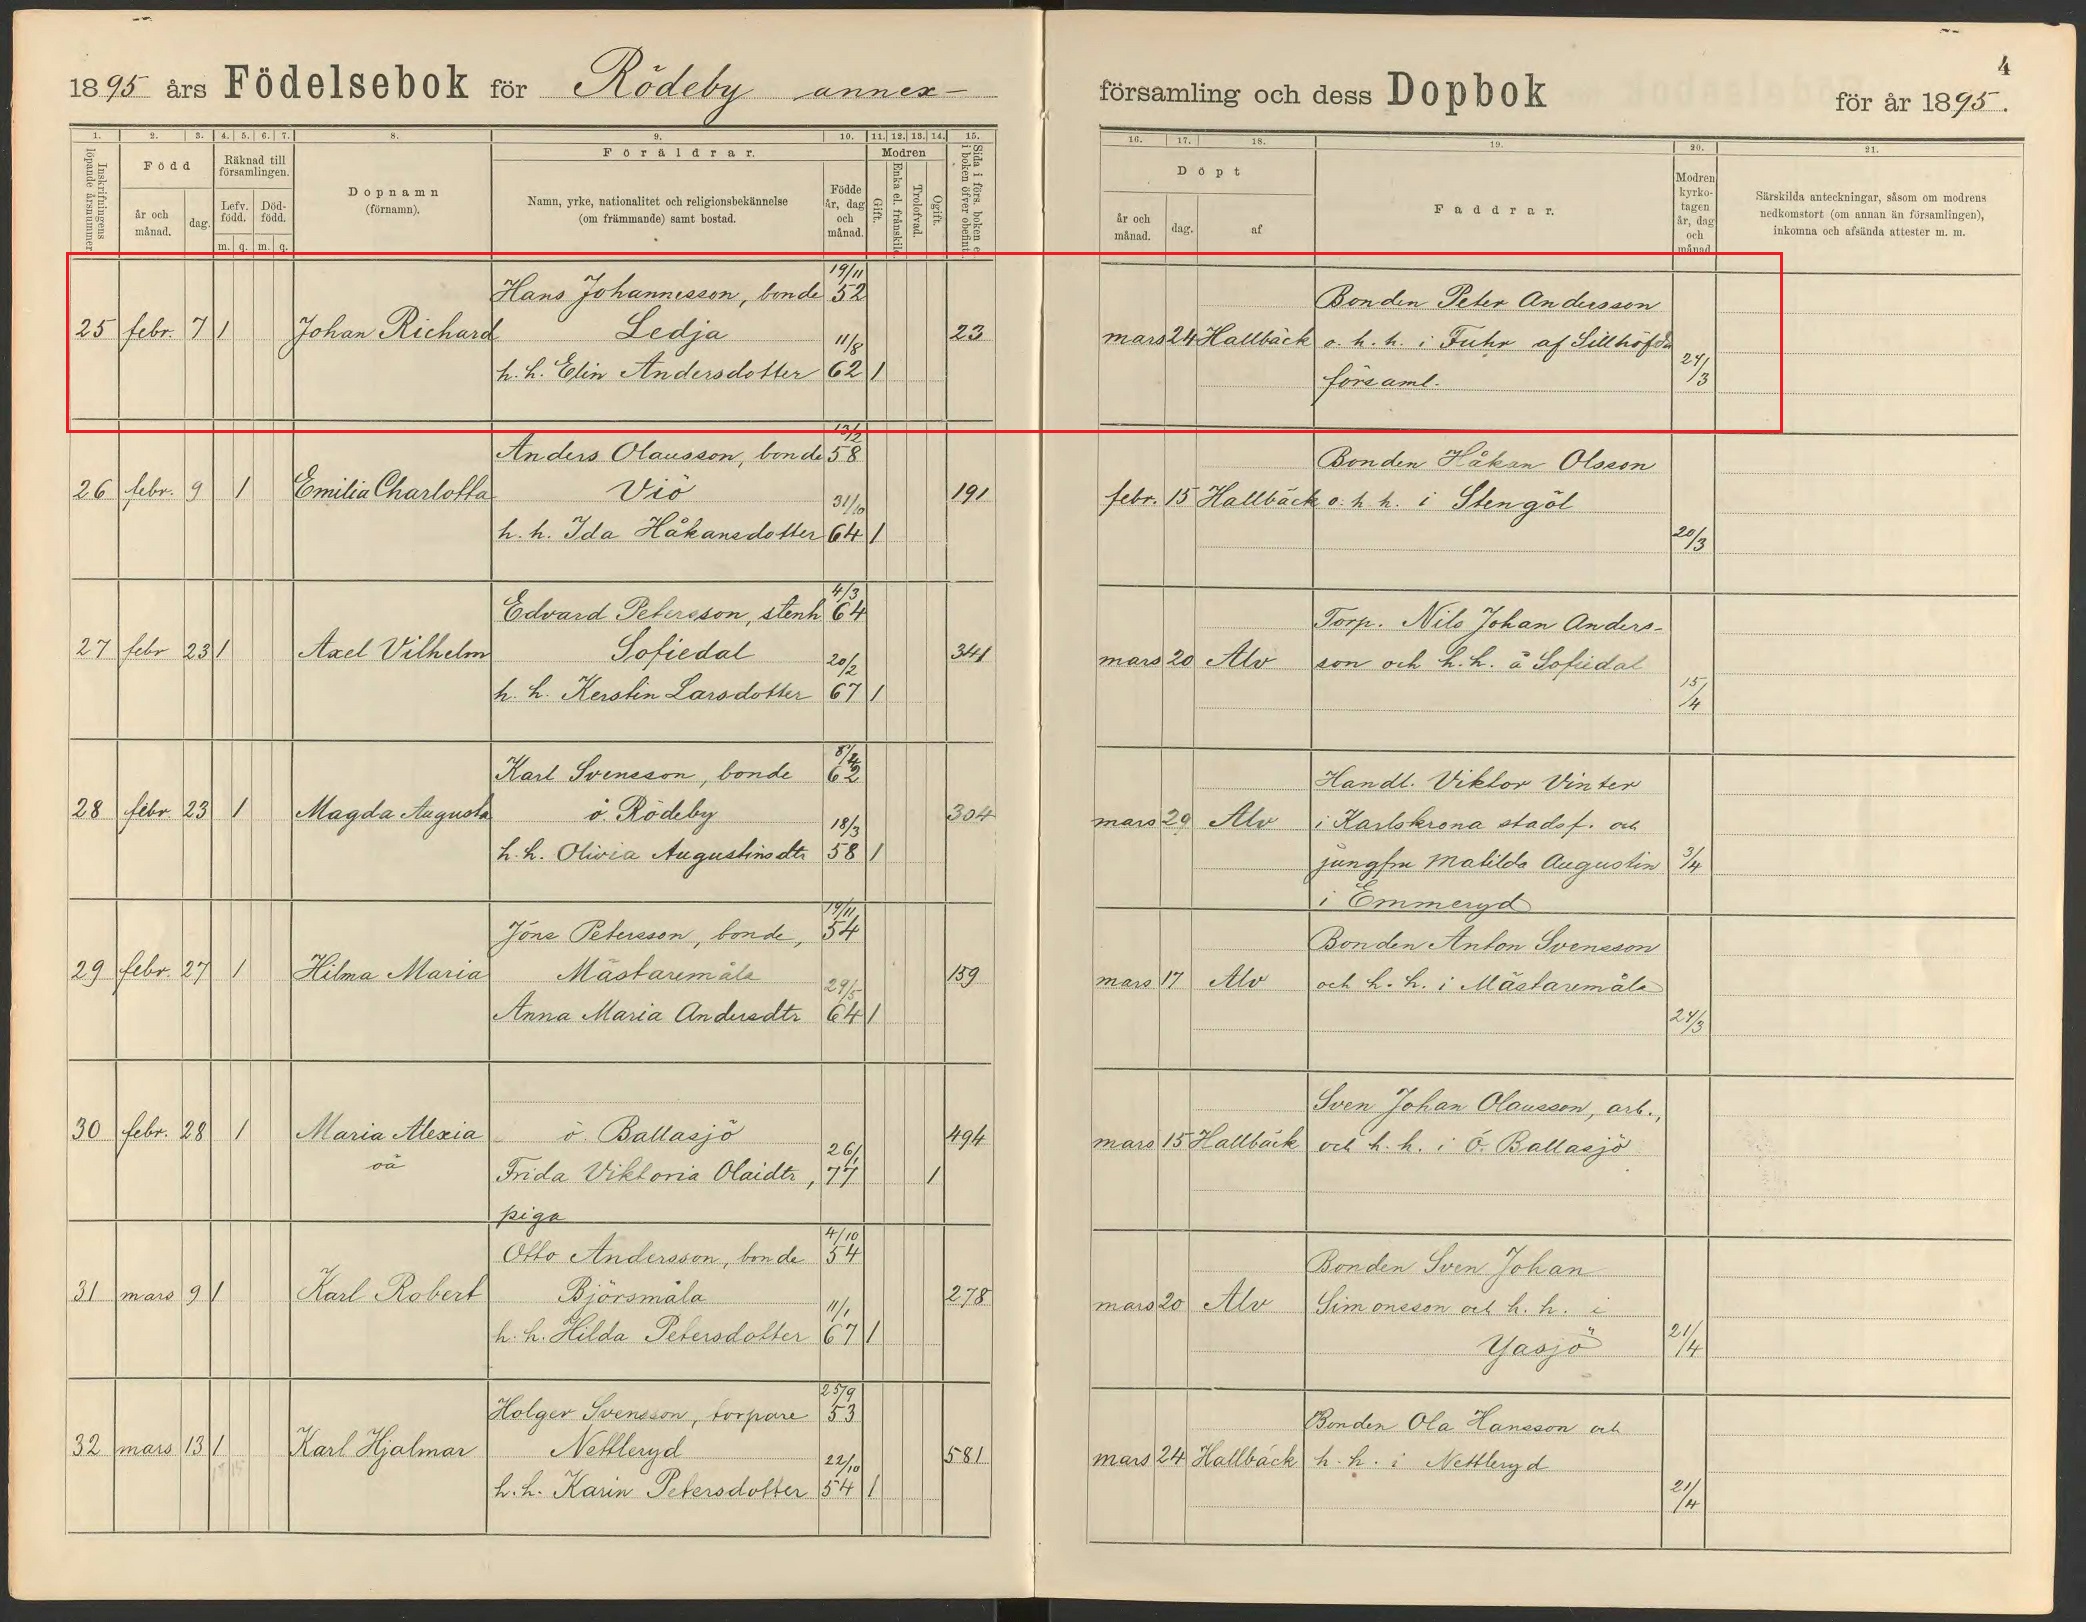 1895 års Födelsebok för Rödeby annex-
församling och dess Dopbok för år 1895.
4
1. 2. 3. 4. 5. 6. 7. 8. 9. 10. 11. 12. 13. 14. 15.
Inskrifningens löpande årsnummer
Född
år och månad.
dag.
Räknad till församlingen.
Lefv. född.
Död-född.
m. q. m. q.
Dopnamn
(förnamn).
Föräldrar.
Namn, yrke, nationalitet och religionsbekännelse
(om främmande) samt bostad.
Födde år, dag och månad.
Modren
Gift.
Enka el. frånskild.
Trolofvad.
Ogift.
Sida i förs. boken el. i boken öfver obefintl.
16. 17. 18. 19. 20. 21.
Döpt
år och månad.
dag.
af
Faddrar.
Modren kyrko-tagen år, dag och månad
Särskilda anteckningar, såsom om modrens
nedkomstort (om annan än församlingen),
inkomna och afsända attester m. m.
19/11
Hans Johannesson, bonde 52
25 febr. 7 1 Johan Richard Ledja 11/8 23
h. h. Elin Andersdotter 62 1
Bonden Peter Andersson
mars 24 Hallbäck o. h. h. i Fuhr af Sillhöfda
församl. 24/3
13/2
Anders Olausson, bonde 58
26 febr. 9 1 Emilia Charlotta Viö 31/10 191
h. h. Ida Håkansdotter 64 1
Bonden Håkan Olsson
febr. 15 Hallbäck o. h h. i Stengöl
20/3
4/3
Edvard Petersson, stenh 64
27 febr 23 1 Axel Vilhelm Sofiedal 20/2 341
h. h. Kerstin Larsdotter 67 1
Torp. Nils Johan Anders-
mars 20 Alv son och h. h. å Sofiedal
15/4
Karl Svensson, bonde 62
28 febr. 23 1 Magda Augusta ö. Rödeby 18/3 304
h. h. Olivia Augustinsdtr 58 1
Handl. Viktor Vinter
mars 29 Alv i Karlskrona stadsf. och
jungfru Matilda Augustin 3/4
i Emmeryd
19/11
Jöns Petersson, bonde, 54
29 febr. 27 1 Hilma Maria Mästaremåla 29/5 159
Anna Maria Andersdtr 64 1
Bonden Anton Svensson
mars 17 Alv och h. h. i Mästaremåla
24/3
30 febr. 28 1 Maria Alexia ö. Ballasjö 494
oä
26/1
Frida Viktoria Olaidtr, 77 1
piga
Sven Johan Olausson, arb.,
mars 15 Hallbäck och h. h. i Ö. Ballasjö
4/10
Otto Andersson, bonde 54
31 mars 9 1 Karl Robert Björsmåla 11/1 278
h. h. Hilda Petersdotter 67 1
Bonden Sven Johan
mars 20 Alv Simonsson och h. h. i
Yasjö 21/4
25/9
Holger Svensson, torpare 53
32 mars 13 1 Karl Hjalmar Nettleryd 22/10 581
h. h. Karin Petersdotter 54 1
Bonden Ola Hansson och
mars 24 Hallbäck h. h. i Nettleryd
21/4